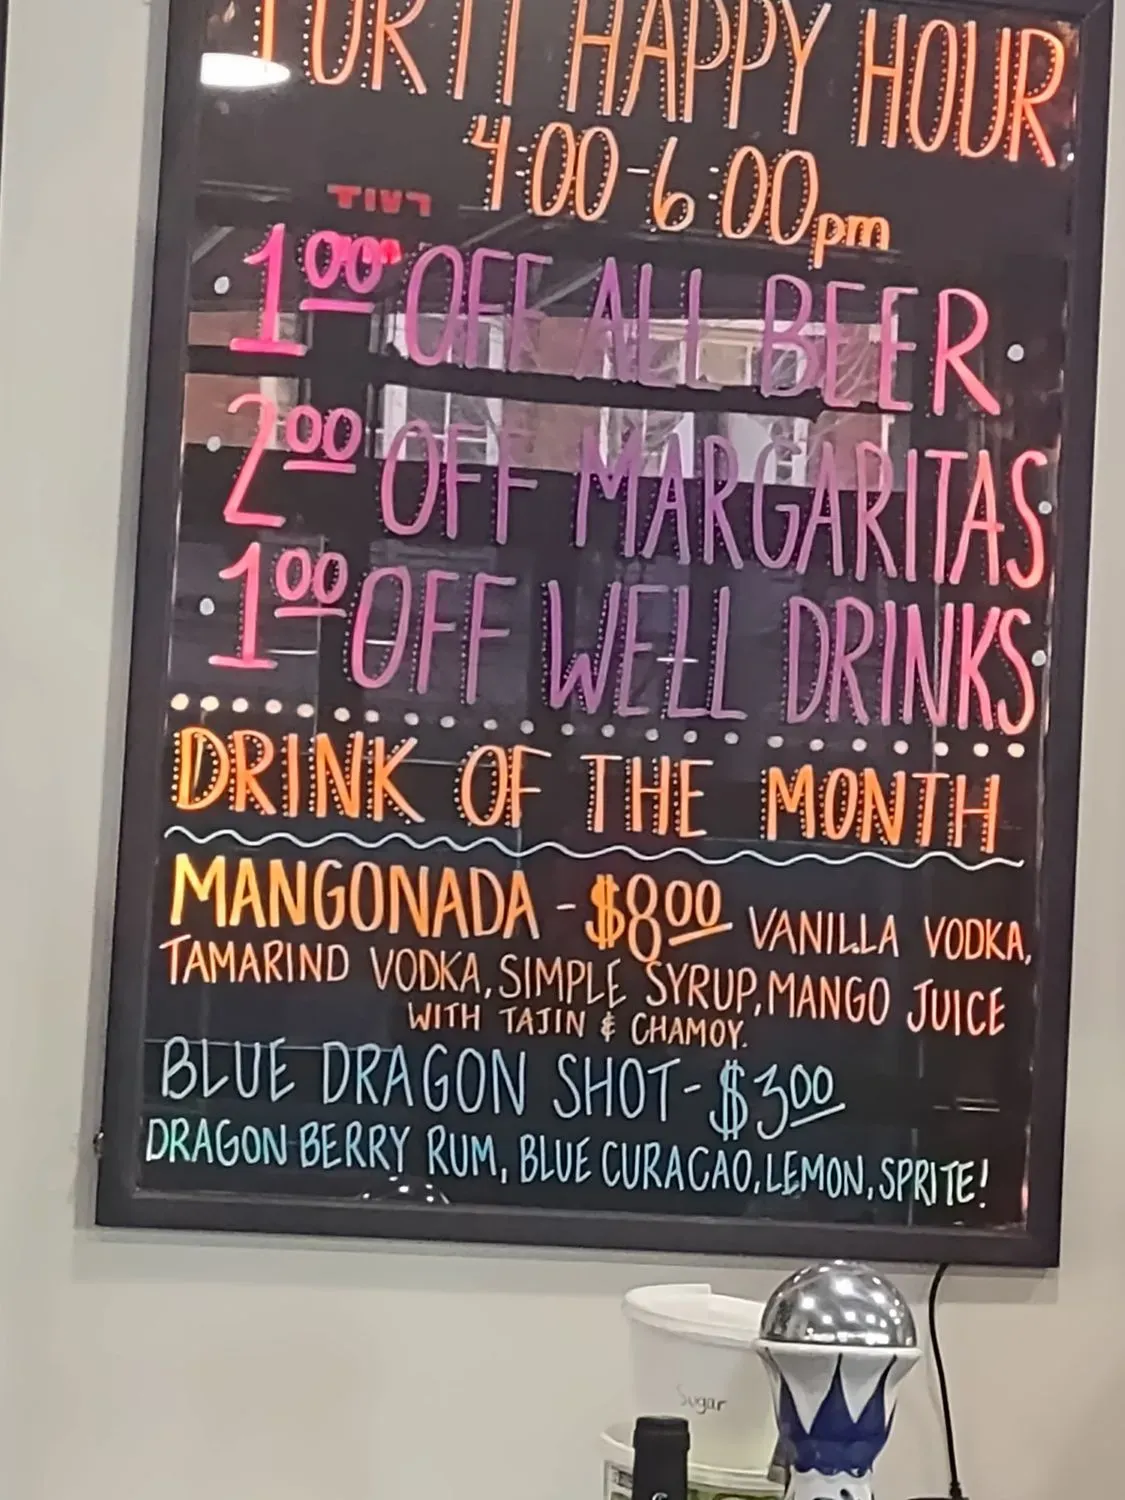 TORTI HAPPY HOUR
4:00-6:00pm
1.00 OFF ALL BEER
2.00 OFF MARGARITAS
1.00 OFF WELL DRINKS
DRINK OF THE MONTH
MANGONADA - $8.00 VANILLA VODKA,
TAMARIND VODKA, SIMPLE SYRUP, MANGO JUICE
WITH TAJIN & CHAMOY.
BLUE DRAGON SHOT - $3.00
DRAGON BERRY RUM, BLUE CURACAO, LEMON, SPRITE!
Sugar